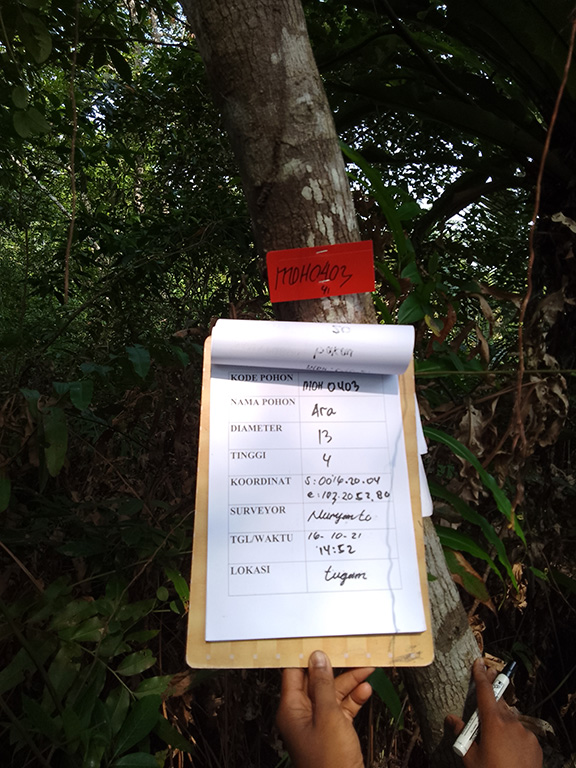 MOH0403
41
KODE POHON MOH.0403
NAMA POHON Ara
DIAMETER 13
TINGGI 4
KOORDINAT S:00'16.20.04
e:103.2052.80
SURVEYOR Nuryanto
TGL/WAKTU 16-10-21
14:52
LOKASI tugam